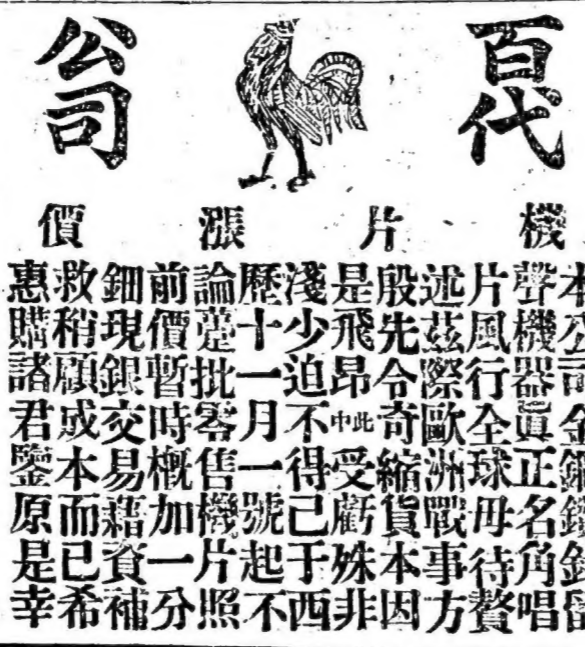 百代
公司
機片漲價
本公司金鋼鑽針留
聲機器眞正名角唱
片風行全球毋待贅
述茲際歐洲戰事方
殷先令奇縮貨本因
是飛昂此中受虧殊非
淺少迫不得已于西
歷十一月一號起不
論躉批零售機片照
前價暫時概加一分
鈿現銀交易藉資補
救稍顧成本而已希
惠購諸君鑒原是幸